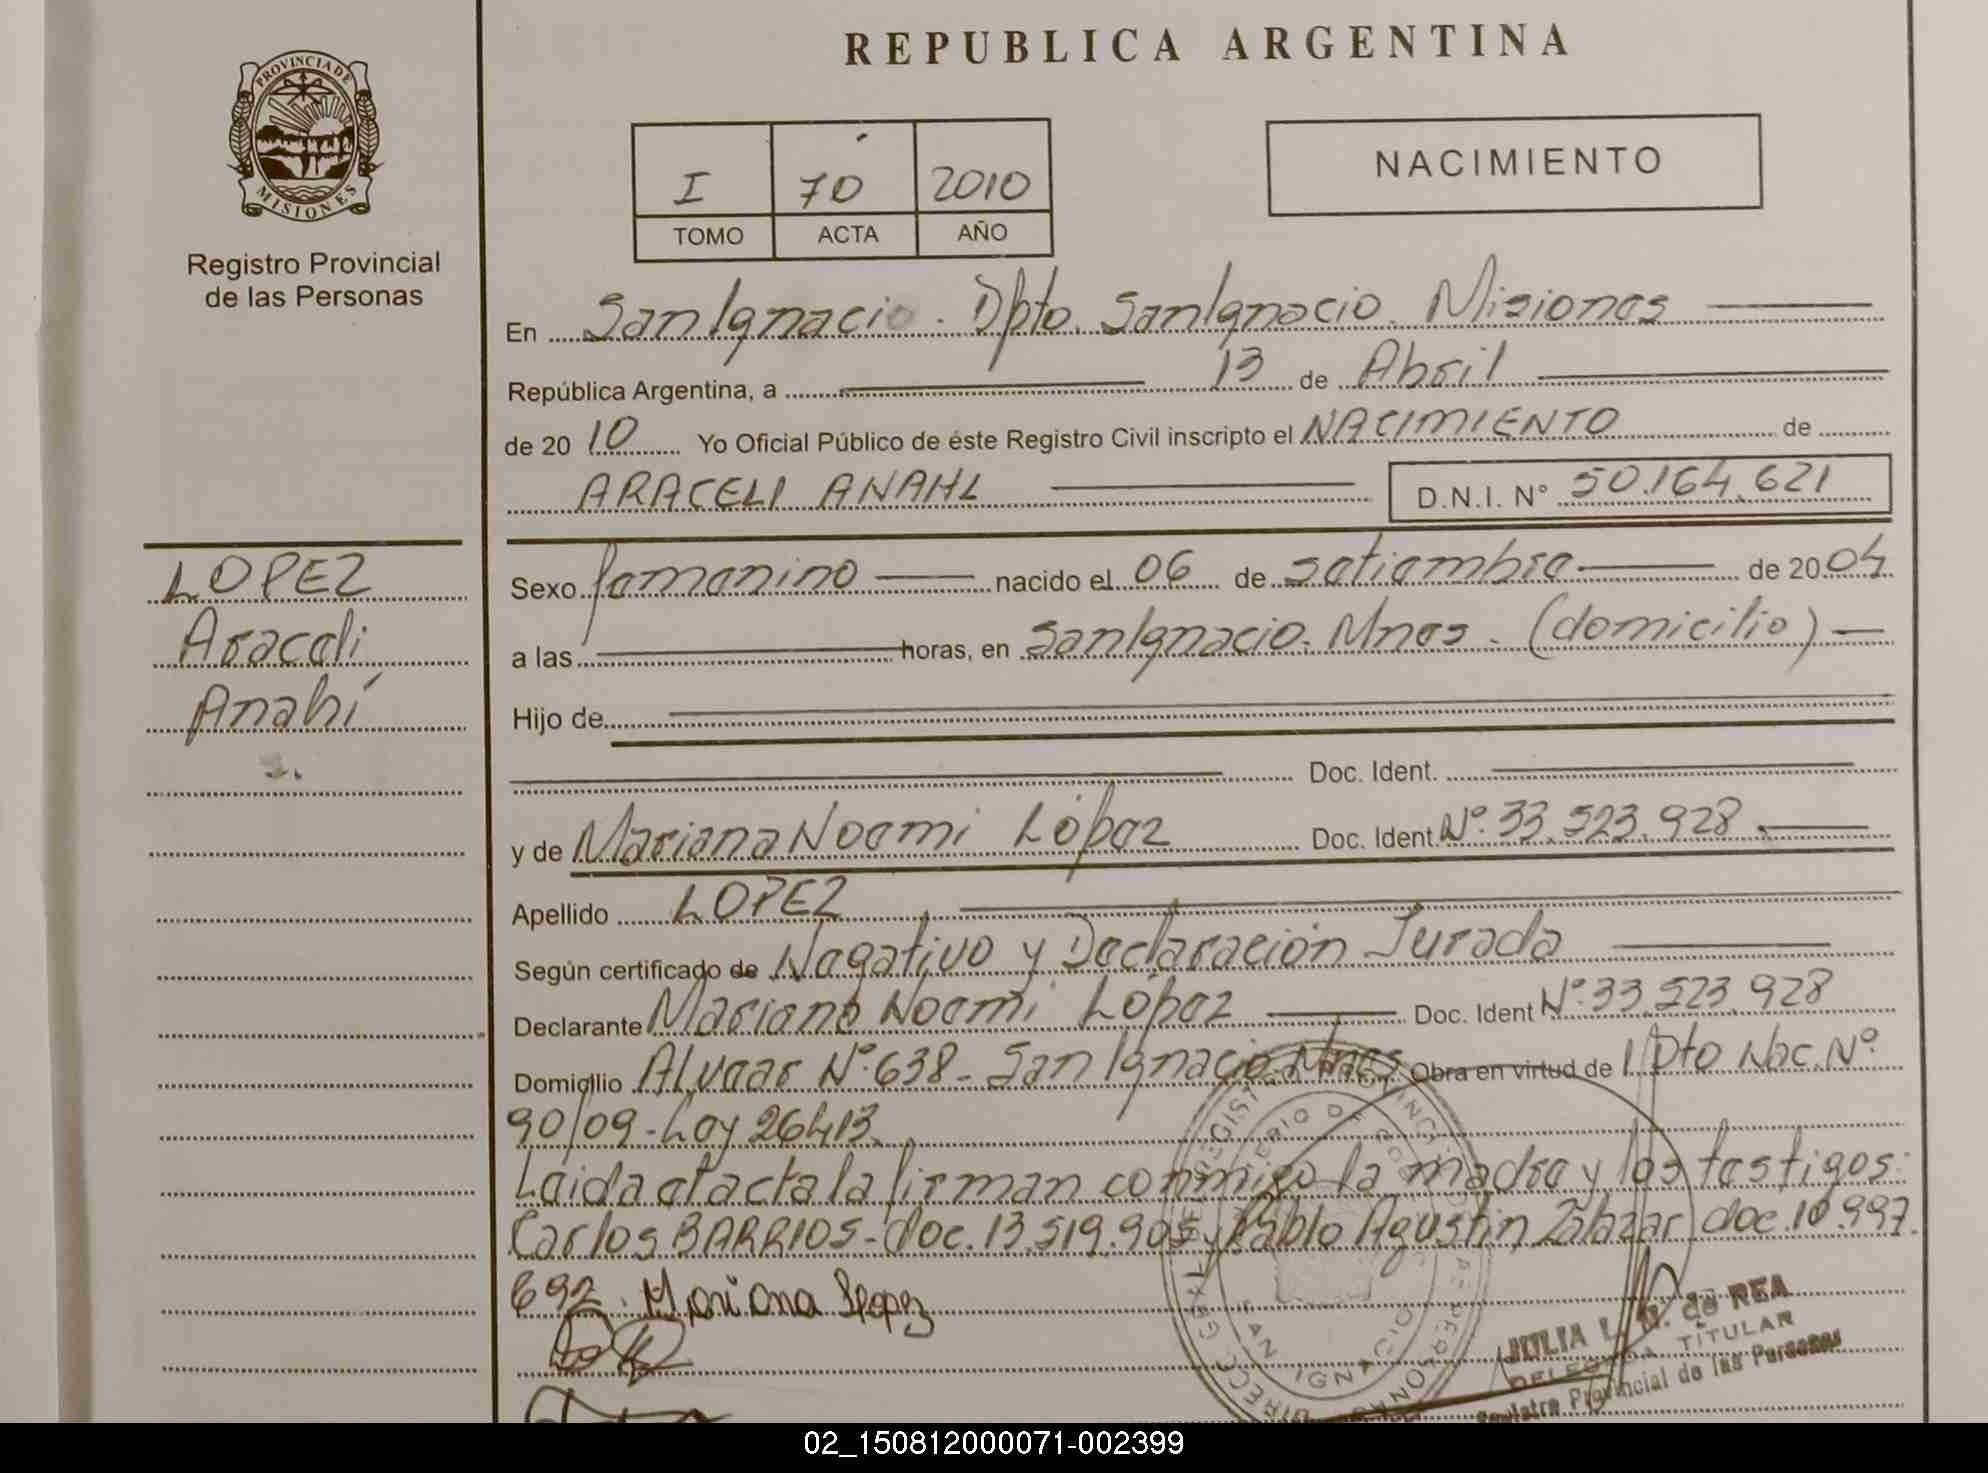 REPUBLICA ARGENTINA
PROVINCIA DE
MISIONES
Registro Provincial
de las Personas
I 70 2010
TOMO ACTA AÑO
NACIMIENTO
En San Ignacio. Dpto. San Ignacio. Misiones
República Argentina, a 13 de Abril
de 20 10 Yo Oficial Público de éste Registro Civil inscripto el NACIMIENTO de
ARACELI ANAHI D.N.I. N° 50.164.621
LOPEZ
Araceli
Anahí
Sexo femenino nacido el 06 de setiembre de 20 04
a las horas, en San Ignacio. Mnes. (domicilio)
Hijo de
Doc. Ident.
y de Mariana Noemi López Doc. Ident. N°. 33.523.928.
Apellido LOPEZ
Según certificado de Negativo y Declaración Jurada
Declarante Mariana Noemi López Doc. Ident N°. 33.523.928
Domicilio Alvear N°. 638 - San Ignacio. Mnes Obra en virtud de Dto Nac. N°.
90/09 - Ley 26413.
Leida el acta la firman conmigo la madre y los testigos:
Carlos BARRIOS - doc. 13.519.905 y Pablo Agustin Zalazar doc. 10.997.
692. Mariana Lopez
SAN IGNACIO
JULIA L. de REA
DELEGADA TITULAR
Registro Provincial de las Personas
02_150812000071-002399